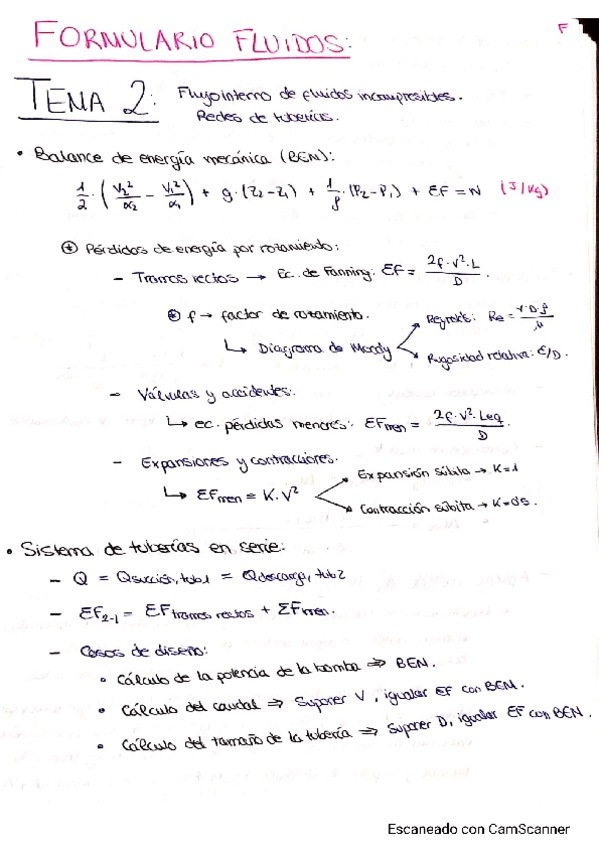 F
FORMULARIO FLUIDOS:
TEMA 2: Flujo interno de fluidos incompresibles.
Redes de tuberías.
• Balance de energía mecánica (BEM):
1/2 · (V₂²/α₂ − V₁²/α₁) + g·(Z₂−Z₁) + 1/ρ · (P₂−P₁) + ΣF = W (J/kg)
⊛ Pérdidas de energía por rozamiento:
– Tramos rectos → Ec. de Fanning: ΣF = 2f·V²·L / D.
⊛ f → factor de rozamiento.
Reynolds: Re = V·D·ρ / μ
↳ Diagrama de Moody
Rugosidad relativa: ε/D.
– Válvulas y accidentes.
↳ ec. pérdidas menores: ΣFmen = 2f·V²·Leq / D.
– Expansiones y contracciones.
Expansión súbita → K=1
↳ ΣFmen = K·V²
Contracción súbita → K=0'5.
• Sistema de tuberías en serie:
– Q = Qsucción, tub1 = Qdescarga, tub2
– ΣF₂₋₁ = ΣFtramos rectos + ΣFmen.
– Casos de diseño:
• Cálculo de la potencia de la bomba ⇒ BEM.
• Cálculo del caudal ⇒ Suponer V, igualar ΣF con BEM.
• Cálculo del tamaño de la tubería ⇒ Suponer D, igualar ΣF con BEM.
Escaneado con CamScanner